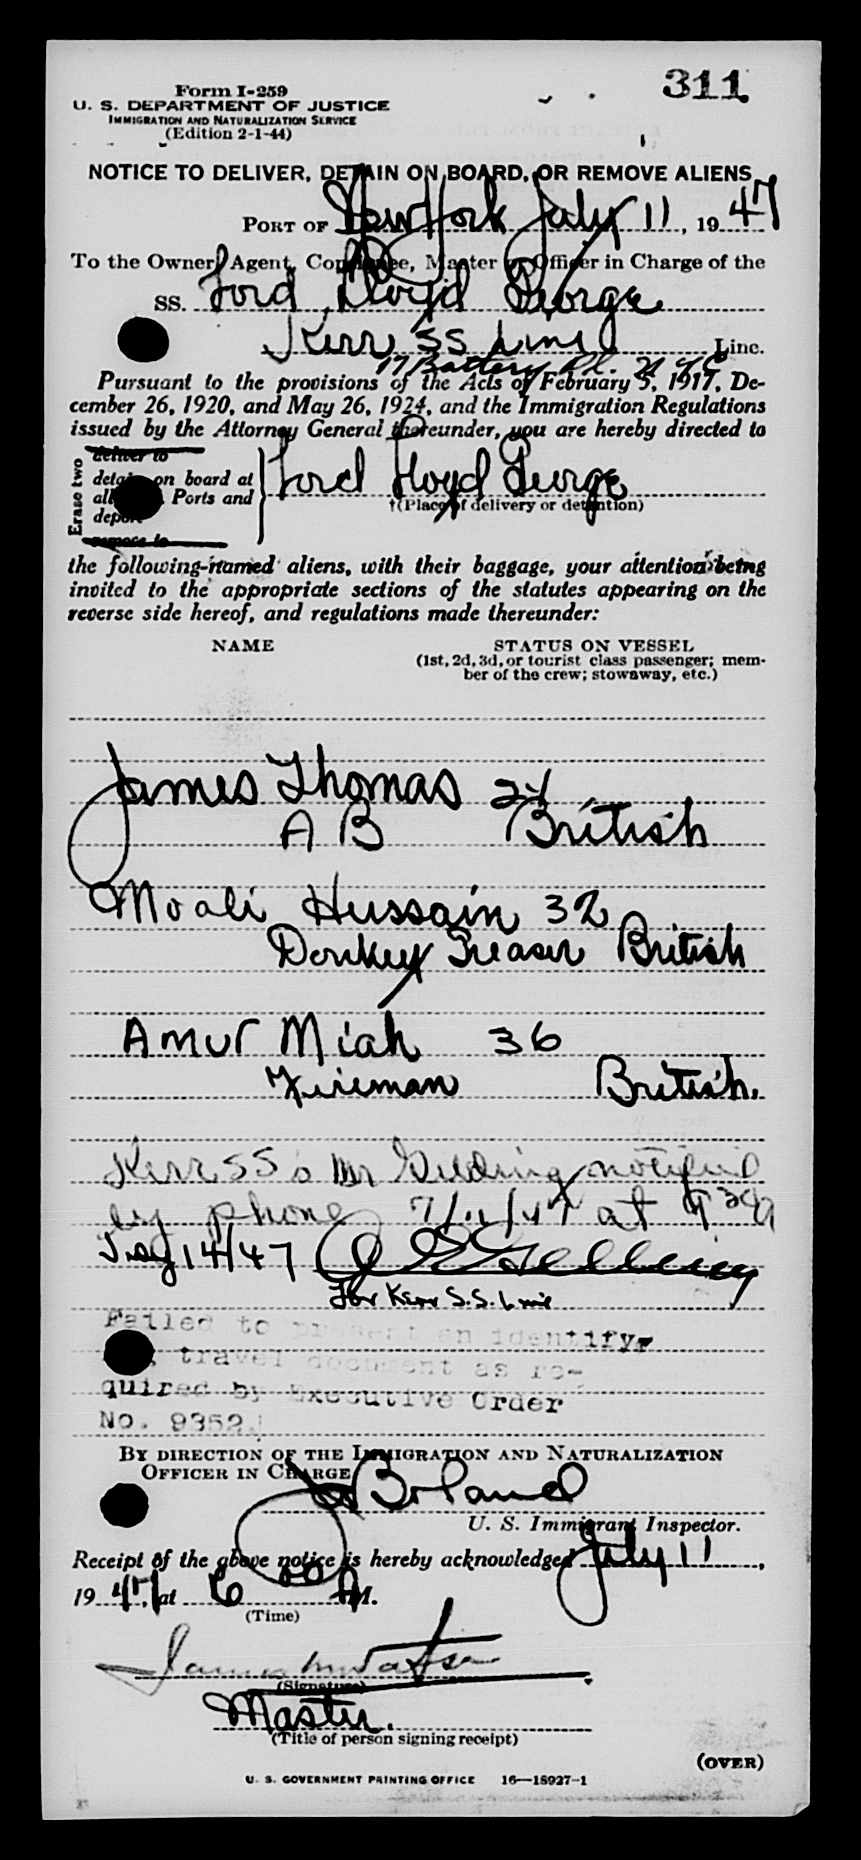 311
Form I-259
U. S. DEPARTMENT OF JUSTICE
IMMIGRATION AND NATURALIZATION SERVICE
(Edition 2-1-44)
NOTICE TO DELIVER, DETAIN ON BOARD, OR REMOVE ALIENS
PORT OF New York July 11, 1947
To the Owner, Agent, Consignee, Master or Officer in Charge of the
SS. Lord Lloyd George
Kerr SS Line Line.
17 Battery Pl. N Y C
Pursuant to the provisions of the Acts of February 5, 1917, De-
cember 26, 1920, and May 26, 1924, and the Immigration Regulations
issued by the Attorney General thereunder, you are hereby directed to
Erase two
deliver to
detain on board at
all Ports and
deport
remove to
Lord Lloyd George
†(Place of delivery or detention)
the following-named aliens, with their baggage, your attention being
invited to the appropriate sections of the statutes appearing on the
reverse side hereof, and regulations made thereunder:
NAME STATUS ON VESSEL
(1st, 2d, 3d, or tourist class passenger; mem-
ber of the crew; stowaway, etc.)
James Thomas 24
A B British
Moali Hussain 32
Donkey Greaser British
Amur Miah 36
Fireman British.
Kerr SS's Mr notified
by phone 7/11/47 at 9 30 A
July 14/47
For Kerr S.S. Line
Failed to present an identify-
travel document as re-
quired by Executive Order
No. 9352.
BY DIRECTION OF THE IMMIGRATION AND NATURALIZATION
OFFICER IN CHARGE
Boland
U. S. Immigrant Inspector.
Receipt of the above notice is hereby acknowledged July 11,
1947, at 6 00 A M.
(Time)
James Watson
(Signature)
Master.
(Title of person signing receipt)
(OVER)
U. S. GOVERNMENT PRINTING OFFICE 16—18927-1